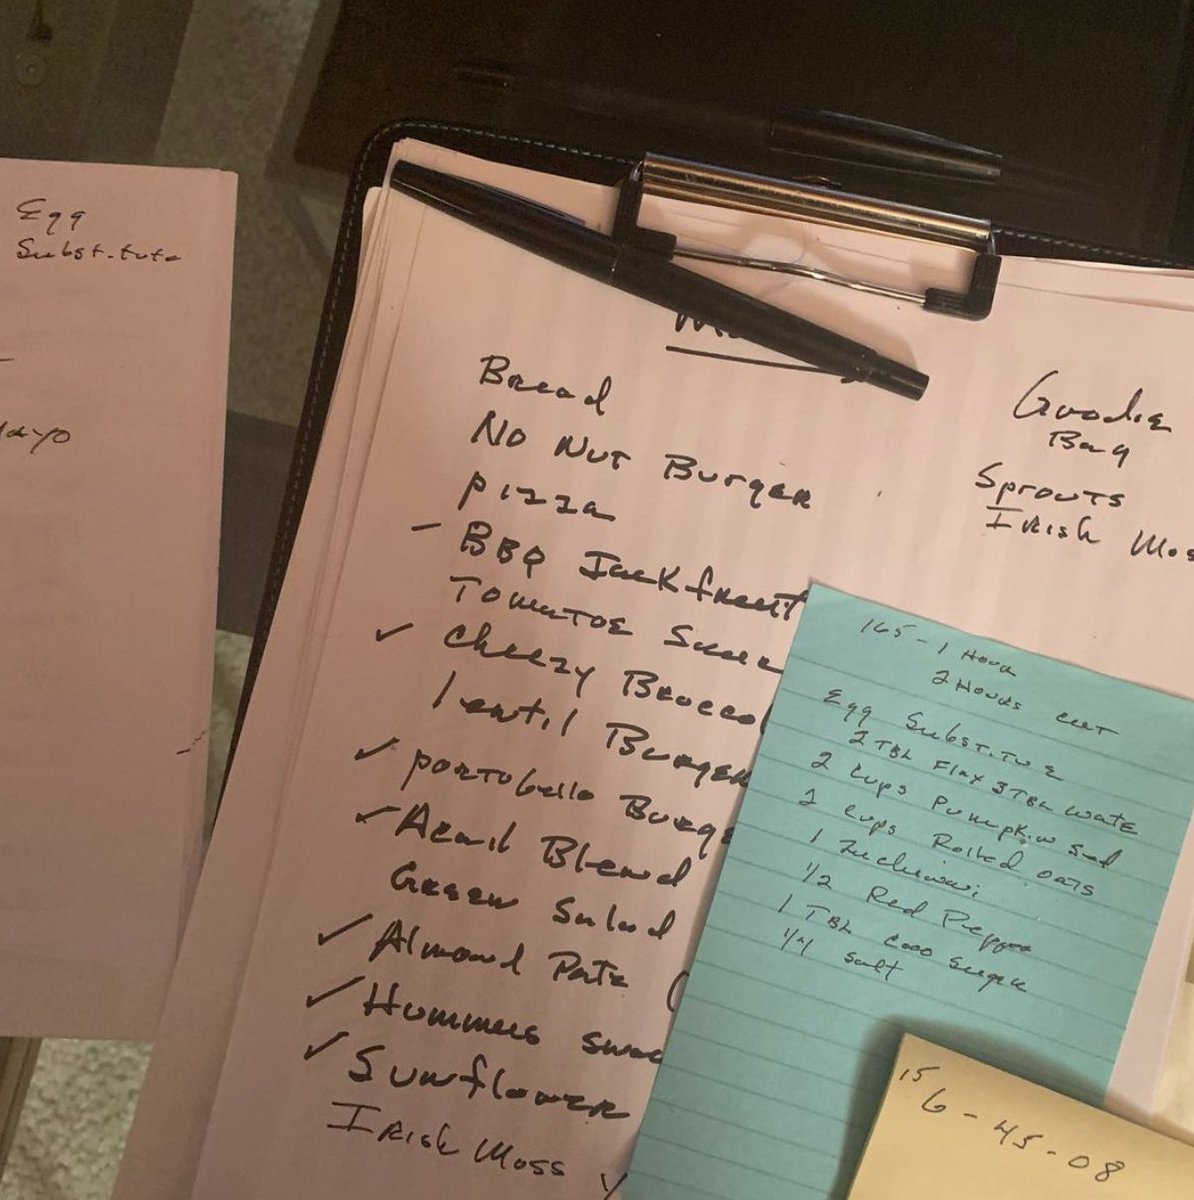 Egg
Subst.tute
Bread
No Nut Burger
Pizza
- BBQ Jackfruit
Tomatoe
✓ Cheezy
Lentil Burger
✓ Portobello
✓ Blend
Green Salad
✓ Almond Pate
✓ Hummus
✓ Sunflower
Irish Moss
Goodie
Bag
Sprouts
Irish
165 - 1 Hour
2 Hours
Egg Subst.tu e
2 TBL Flax 3 TBL Wate
2 Cups Pumpkin Sed
2 Cups Rolled oats
1 Zuchinni
1/2 Red Pepper
1 TBL coco Suger
1/4 salt
15
6-45-08